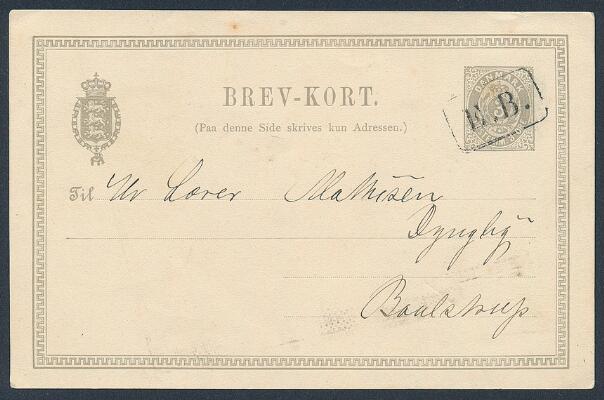 BREV-KORT.
(Paa denne Side skrives kun Adressen.)
DANMARK
3
B.
Til Hr Lærer Mathisen
Dyngby
Boulstrup